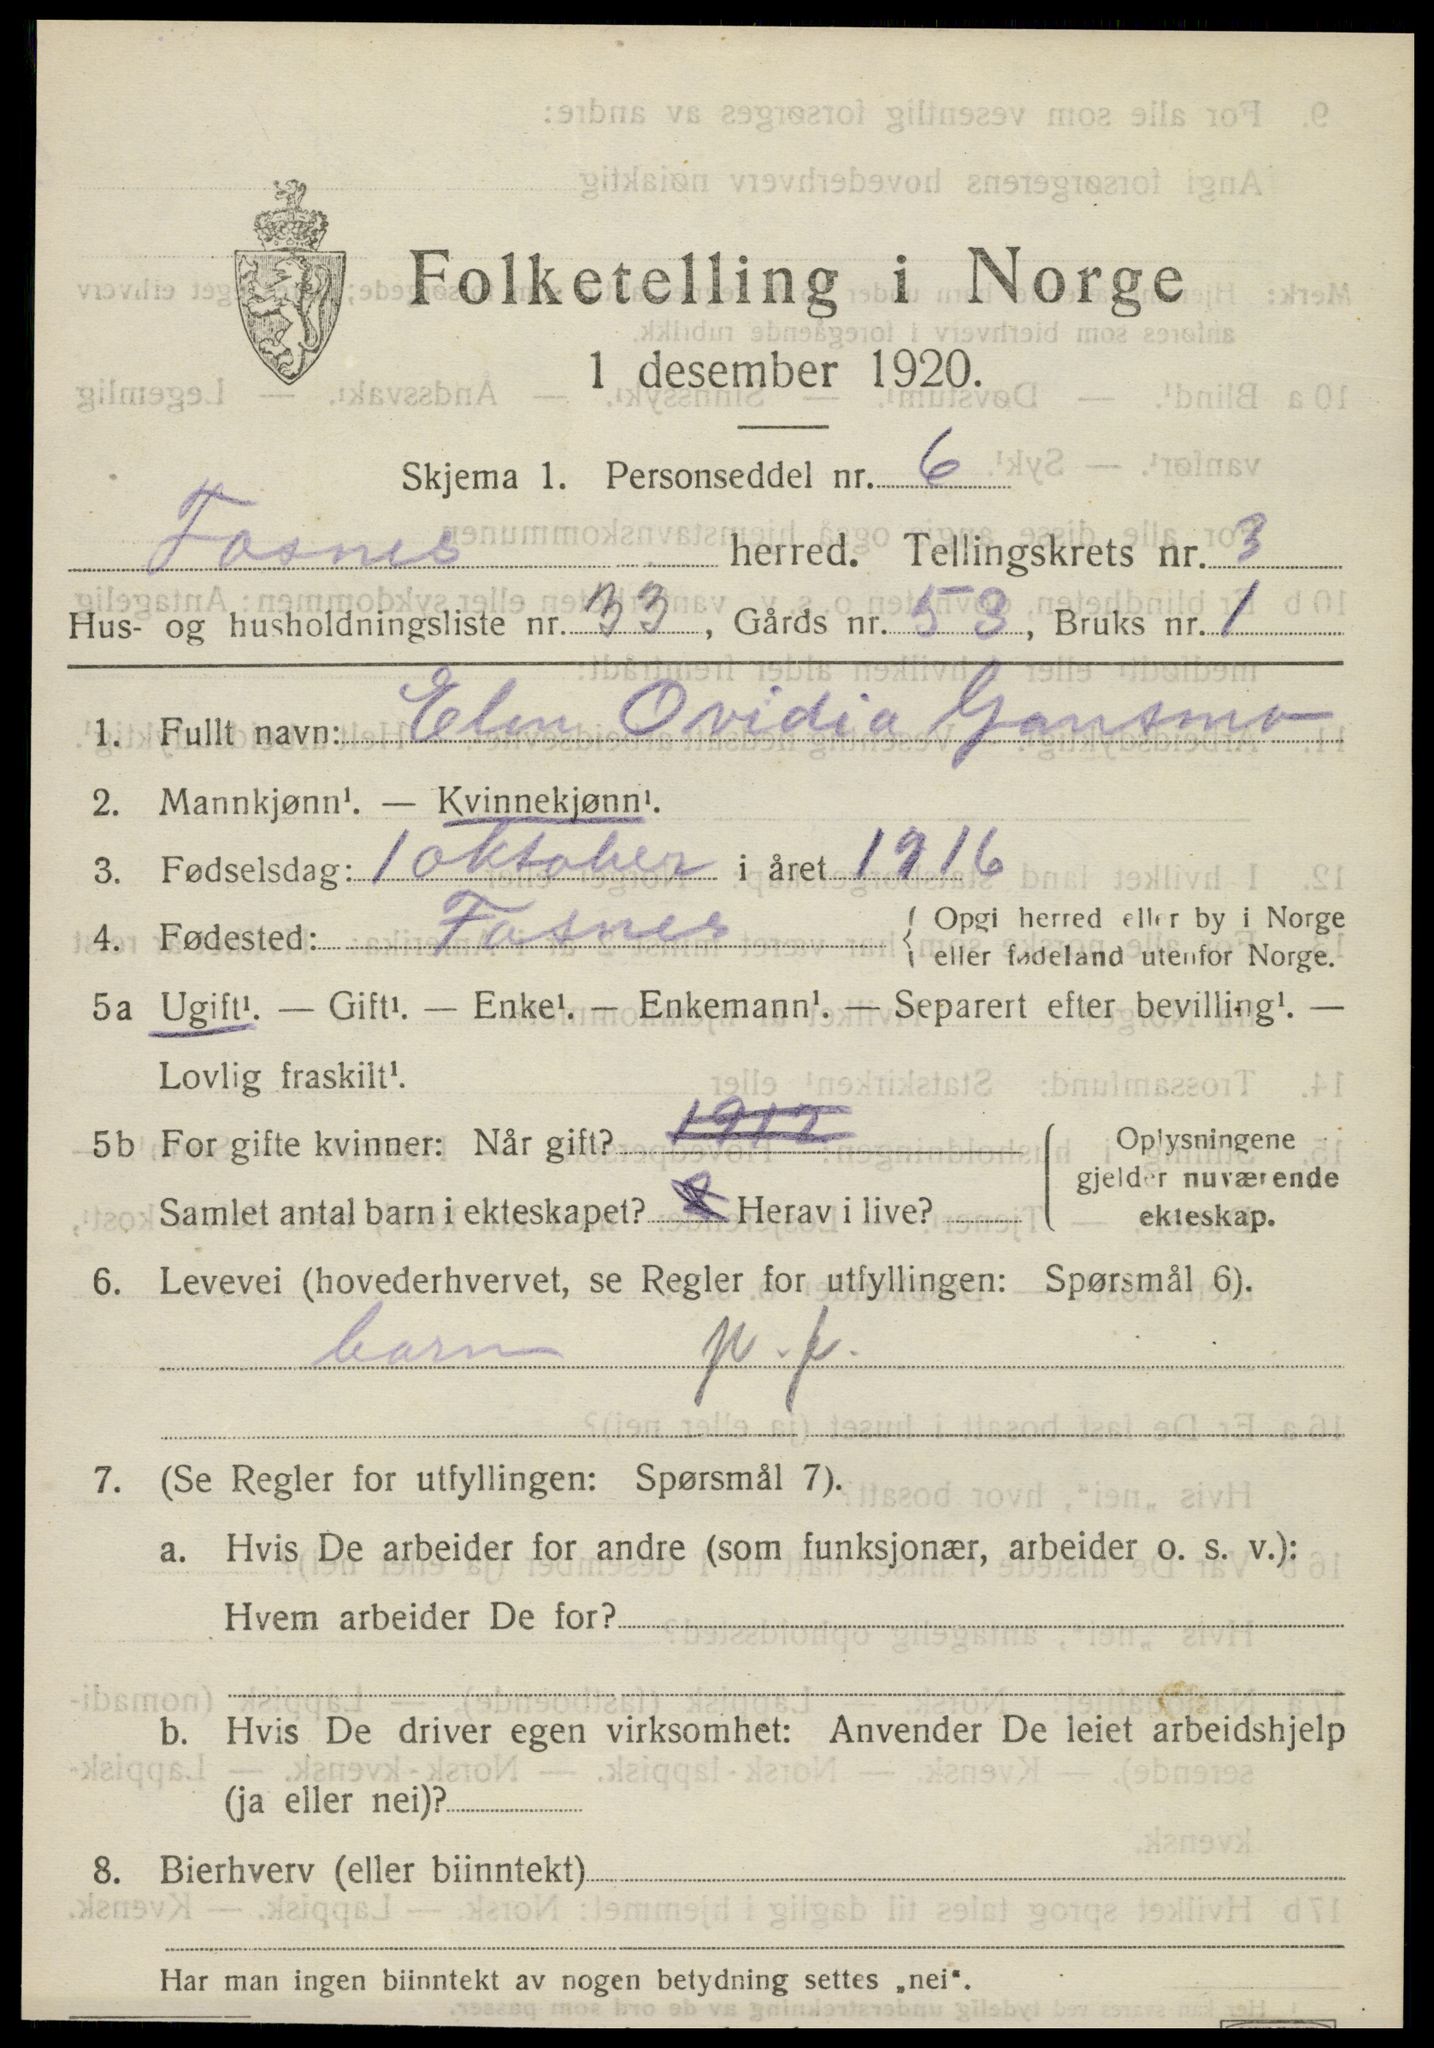 Folketelling i Norge
1 desember 1920.
Skjema 1. Personseddel nr. 6
Fosnes herred. Tellingskrets nr. 3
Hus- og husholdningsliste nr. 33, Gårds nr. 53, Bruks nr. 1
1. Fullt navn: Elen Ovidia Gansmo
2. Mannkjønn¹. — Kvinnekjønn¹.
3. Fødselsdag: 1 oktober i året 1916
4. Fødested: Fosnes { Opgi herred eller by i Norge
eller fødeland utenfor Norge.
5a Ugift¹. — Gift¹. — Enke¹. — Enkemann¹. — Separert efter bevilling¹. —
Lovlig fraskilt¹.
5b For gifte kvinner: Når gift? 1912
Samlet antal barn i ekteskapet? Herav i live?
Oplysningene
gjelder nuværende
ekteskap.
6. Levevei (hovederhvervet, se Regler for utfyllingen: Spørsmål 6).
barn p.f.
7. (Se Regler for utfyllingen: Spørsmål 7).
a. Hvis De arbeider for andre (som funksjonær, arbeider o. s. v.):
Hvem arbeider De for?
b. Hvis De driver egen virksomhet: Anvender De leiet arbeidshjelp
(ja eller nei)?
8. Bierhverv (eller biinntekt)
Har man ingen biinntekt av nogen betydning settes „nei“.